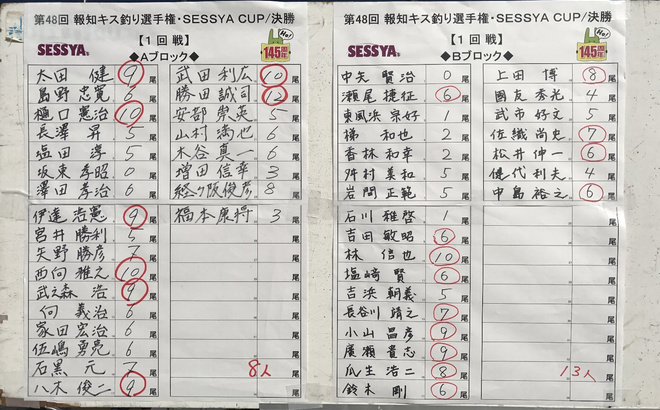 第48回 報知キス釣り選手権・SESSYA CUP/決勝
【1回戦】
SESSYA
145周年
◆Aブロック◆
太田 健 9尾
島野忠寛 6尾
樋口憲治 10尾
長澤 昇 5尾
塩田 淳 5尾
坂東孝昭 0尾
澤田孝治 6尾
伊達浩憲 9尾
宮井勝利 5尾
矢野勝彦 7尾
西向雅之 10尾
武之森 浩 9尾
何 義治 6尾
家田宏治 6尾
伍嶋勇亮 6尾
石黒 元 7尾
八木俊二 9尾
武田利広 10尾
勝田誠司 12尾
安部榮英 5尾
山村満也 6尾
木谷真一 6尾
増田信幸 3尾
経ヶ阪俊彦 8尾
福本康将 3尾
8人
第48回 報知キス釣り選手権・SESSYA CUP/決勝
【1回戦】
SESSYA
145周年
◆Bブロック◆
中矢賢治 0尾
瀬尾捷征 6尾
東風浜宗好 1尾
梯 和也 2尾
香林和幸 2尾
舛村美和 5尾
岩間正範 5尾
石川雅啓 1尾
吉田敏昭 6尾
林 信也 10尾
塩崎 賢 6尾
吉浜朝義 5尾
長谷川靖之 7尾
小山昌彦 9尾
廣瀬貴志 9尾
瓜生浩二 8尾
鈴木 剛 6尾
上田 博 8尾
國友秀光 4尾
武市好文 5尾
佐織尚史 7尾
松井伸一 6尾
健代利夫 4尾
中島裕之 6尾
13人